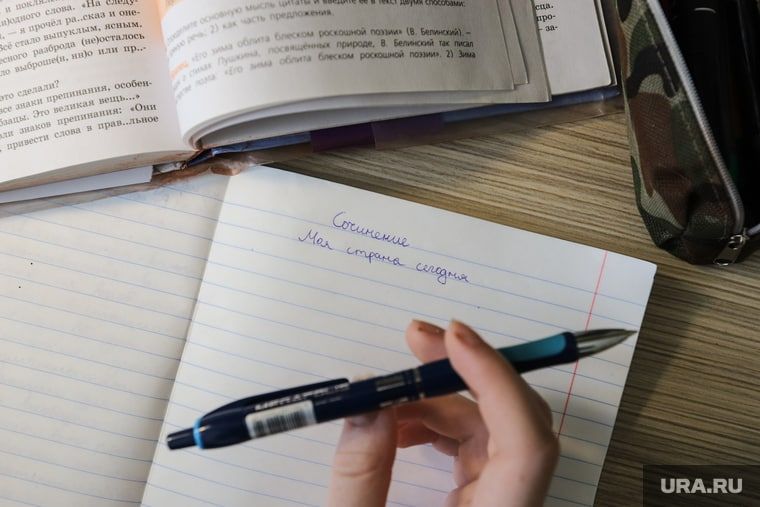 в поклоне
людного слова. «На следу-
я прочёл ра..сказ и оне-
Всё стало выпуклым, ясным.
есного разброда (не)осталось
о выброше(н, нн)о или пр..-
это сделали?
се знаки препинания, особен-
бзацы. Это великая вещь...»
али знаков препинания: «Они
привести слова в прав..льное
за-
основную мысль цитаты и введите её в текст двумя способами:
речь; 2) как часть предложения.
«Его зима облита блеском роскошной поэзии» (В. Белинский). –
о стихах Пушкина, посвящённых природе, В. Белинский так писал
поэта: «Его зима облита блеском роскошной поэзии». 2) Зима
Сочинение
Моя страна сегодня
URA.RU